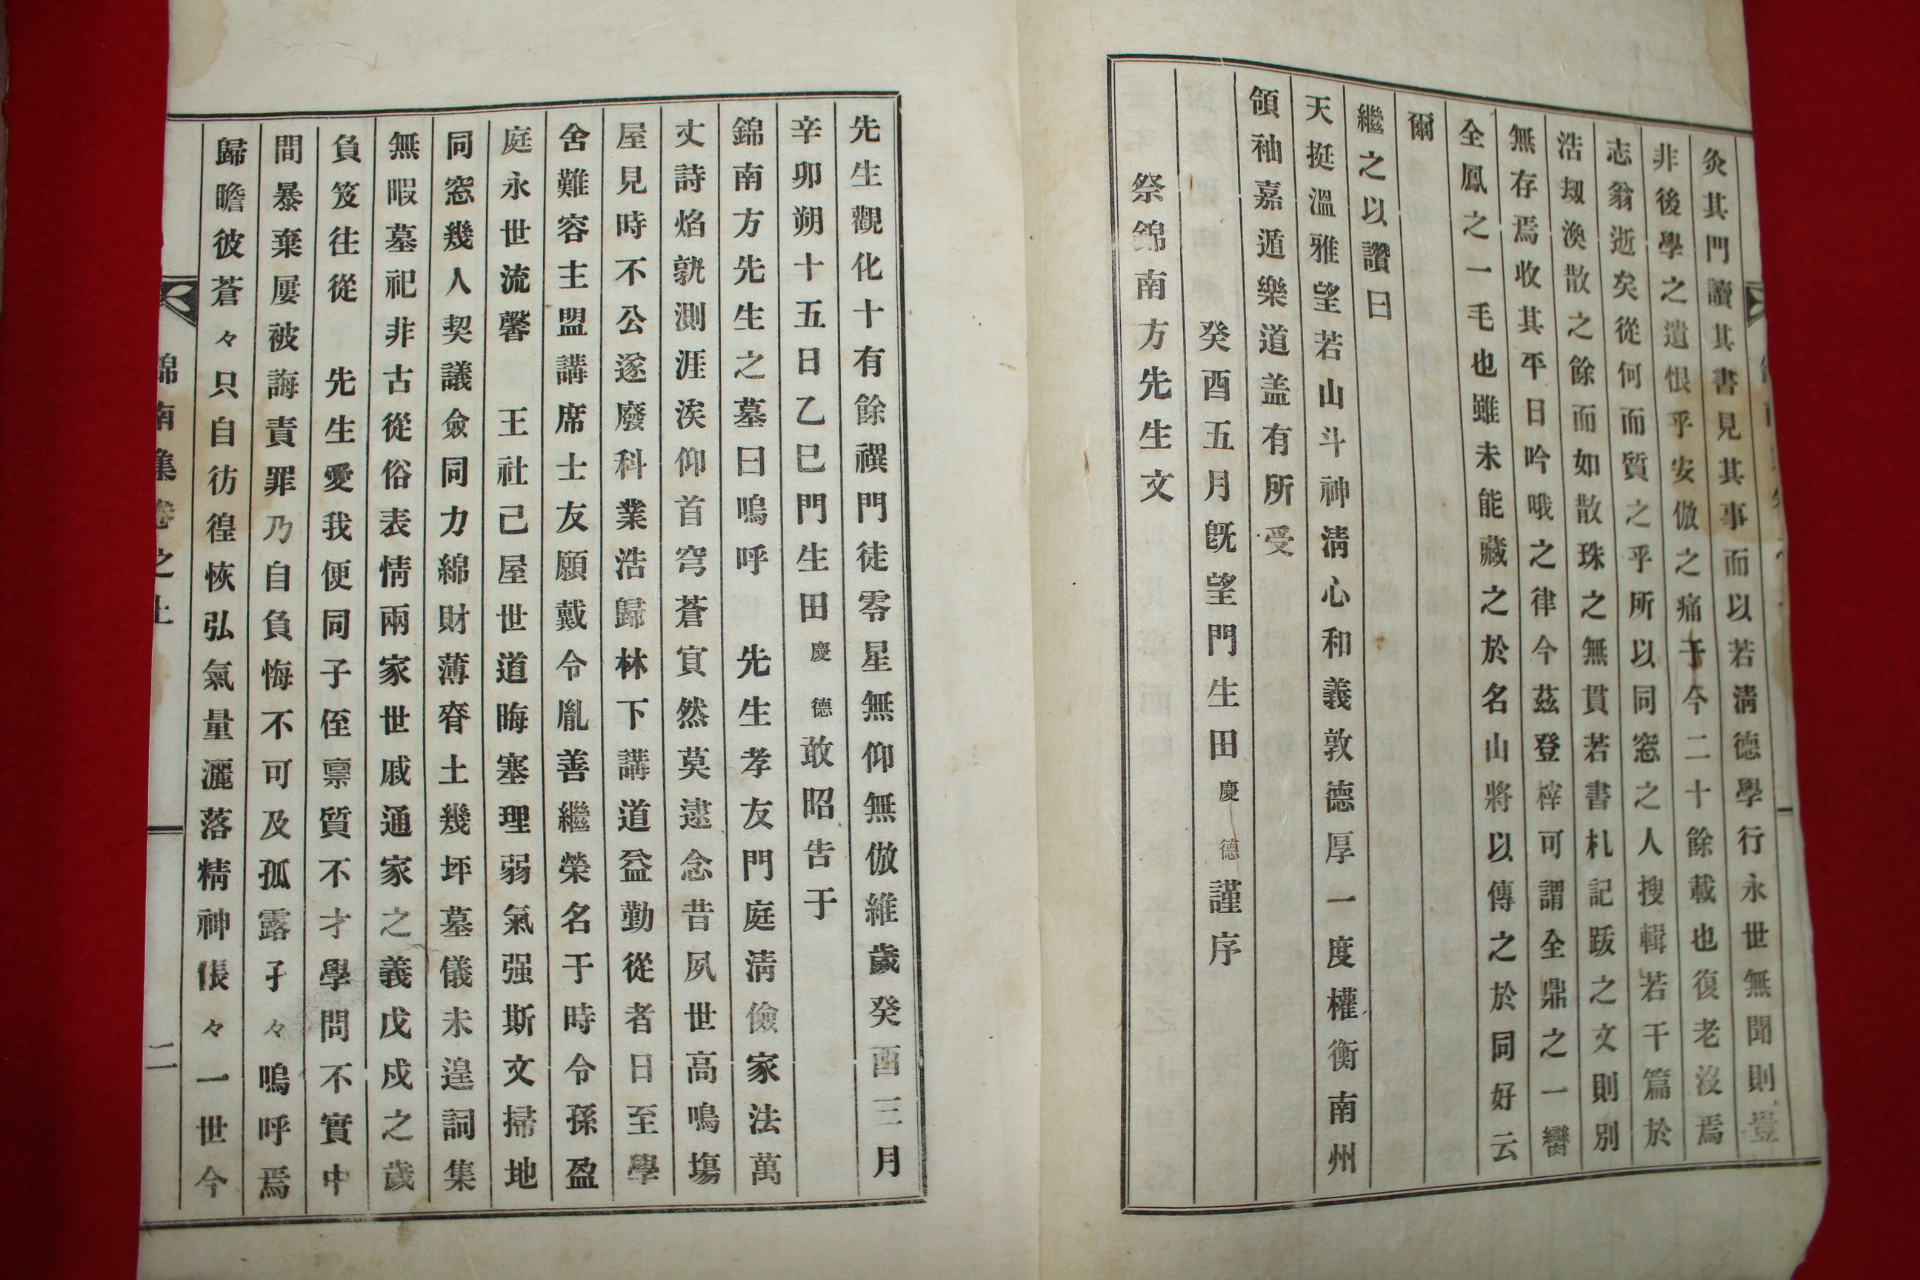 灸其門讀其書見其事而以若淸德學行永世無聞則豈
非後學之遺恨乎安倣之痛于今二十餘載也復老沒焉
志翁逝矣從何而質之乎所以同窓之人搜輯若干篇於
浩刼渙散之餘而如散珠之無貫若書札記跋之文則別
無存焉收其平日吟哦之律今玆登梓可謂全鼎之一臠
全鳳之一毛也雖未能藏之於名山將以傳之於同好云
爾
繼之以讚曰
天挺溫雅望若山斗神淸心和義敦德厚一度權衡南州
領袖嘉遁樂道盖有所受
癸酉五月旣望門生田慶德謹序
祭錦南方先生文
先生觀化十有餘禩門徒零星無仰無倣維歲癸酉三月
辛卯朔十五日乙巳門生田慶德敢昭告于
錦南方先生之墓曰嗚呼 先生孝友門庭淸儉家法萬
丈詩焰孰測涯涘仰首穹蒼寘然莫逮念昔夙世高鳴塲
屋見時不公遂廢科業浩歸林下講道益勤從者日至學
舍難容主盟講席士友願戴令胤善繼榮名于時令孫盈
庭永世流馨 王社己屋世道晦塞理弱氣强斯文掃地
同窓幾人契議僉同力綿財薄脊土幾坪墓儀未遑詞集
無暇墓祀非古從俗表情兩家世戚通家之義戊戌之歲
負笈往從 先生愛我便同子侄禀質不才學問不實中
間暴棄屢被誨責罪乃自負悔不可及孤露孑々嗚呼焉
歸瞻彼蒼々只自彷徨恢弘氣量灑落精神倀々一世今
錦南集卷之上
二